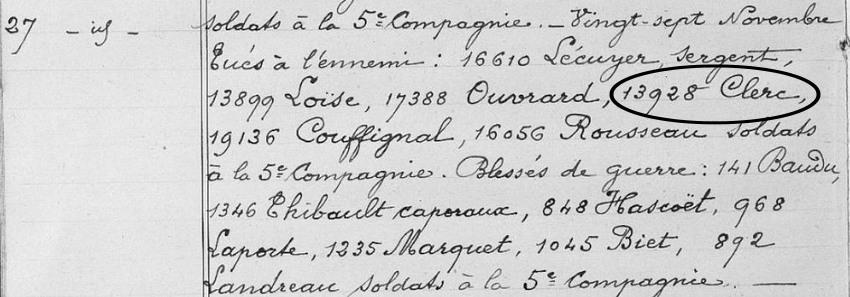 27 - id - soldats à la 5e Compagnie. - Vingt-sept Novembre
Tués à l'ennemi : 16610 Lécuyer, sergent,
13899 Loïse, 17388 Ouvrard, 13928 Clerc,
19136 Couffignal, 16056 Rousseau soldats
à la 5e Compagnie. Blessés de guerre : 141 Baudu,
1346 Thibault caporaux, 848 Hascoët, 968
Laporte, 1235 Marquet, 1045 Biet, 892
Landreau soldats à la 5e Compagnie. —